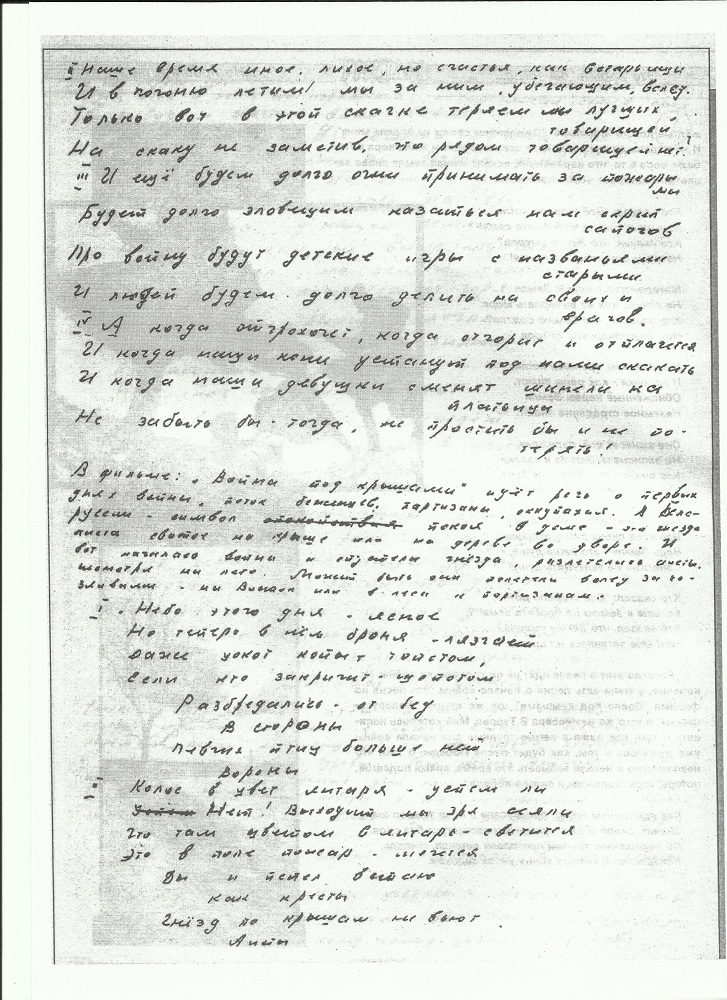 II Наше время иное, лихое, но счастья, как встарь ищи
И в погоню летим мы за ним, убегающим, вслед.
Только вот в этой скачке теряем мы лучших
товарищей,
На скаку не заметив, что рядом товарищей нет.
III И ещё будем долго огни принимать за пожары
мы
Будет долго зловещим казаться нам скрип
сапогов
Про войну будут детские игры с названьями
старыми
И людей будем долго делить на своих и
врагов.
IV А когда отгрохочет, когда отгорит и отплачется
И когда наши кони устанут под нами скакать
И когда наши девушки сменят шинели на
платьица
Не забыть бы тогда, не простить бы и не по-
терять!
В фильме: „Война под крышами" идёт речь о первых
днях войны, поток беженцев, партизаны, оккупация. А Бело-
руссии - символ спокойствия покоя в доме - это гнездо
аиста свитое на крыше или на дереве во дворе. И
вот началась война и опустели гнёзда, разлетелись аисты,
несмотря на лето. Может быть они полетели вслед за хо-
зяевами - на Восток или в леса к партизанам.
I. Небо этого дня - ясное
Но теперь в нём броня - лязгает
Даже цокот копыт топотом,
Если кто закричит - шёпотом
Разбредались от бед
В стороны
Певчих птиц больше нет
Вороны
II Колос в цвет янтаря - успеем ли
Успеем Нет! Выходит мы зря сеяли
Что там цветом в янтарь - светится
Это в поле пожар - мечется
Дым и пепел встают
как кресты
Гнёзд по крышам не вьют
Аисты